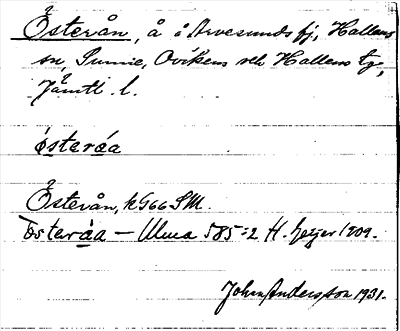 Österån, å i Arvesunds fj., Hallens
sn, Sunne, Ovikens och Hallens tg,
Jämtl. l.
östəråa
Österån, k 966 SM.
östəråa – Ulma 585:2 H. Geijer 1909.
John Andersson 1931.